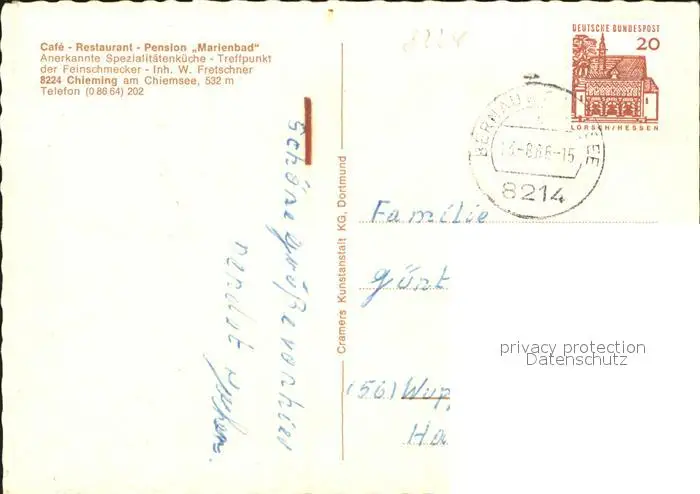 Café - Restaurant - Pension „Marienbad"
Anerkannte Spezialitätenküche - Treffpunkt
der Feinschmecker - Inh. W. Fretschner
8224 Chieming am Chiemsee, 532 m
Telefon (0 86 64) 202
8224
DEUTSCHE BUNDESPOST
20
LORSCH/HESSEN
BERNAU
8214
Schöne Grüße von hier
sendet
Cramers Kunstanstalt KG, Dortmund
Familie
Günt
(56) Wup
Ha
privacy protection
Datenschutz